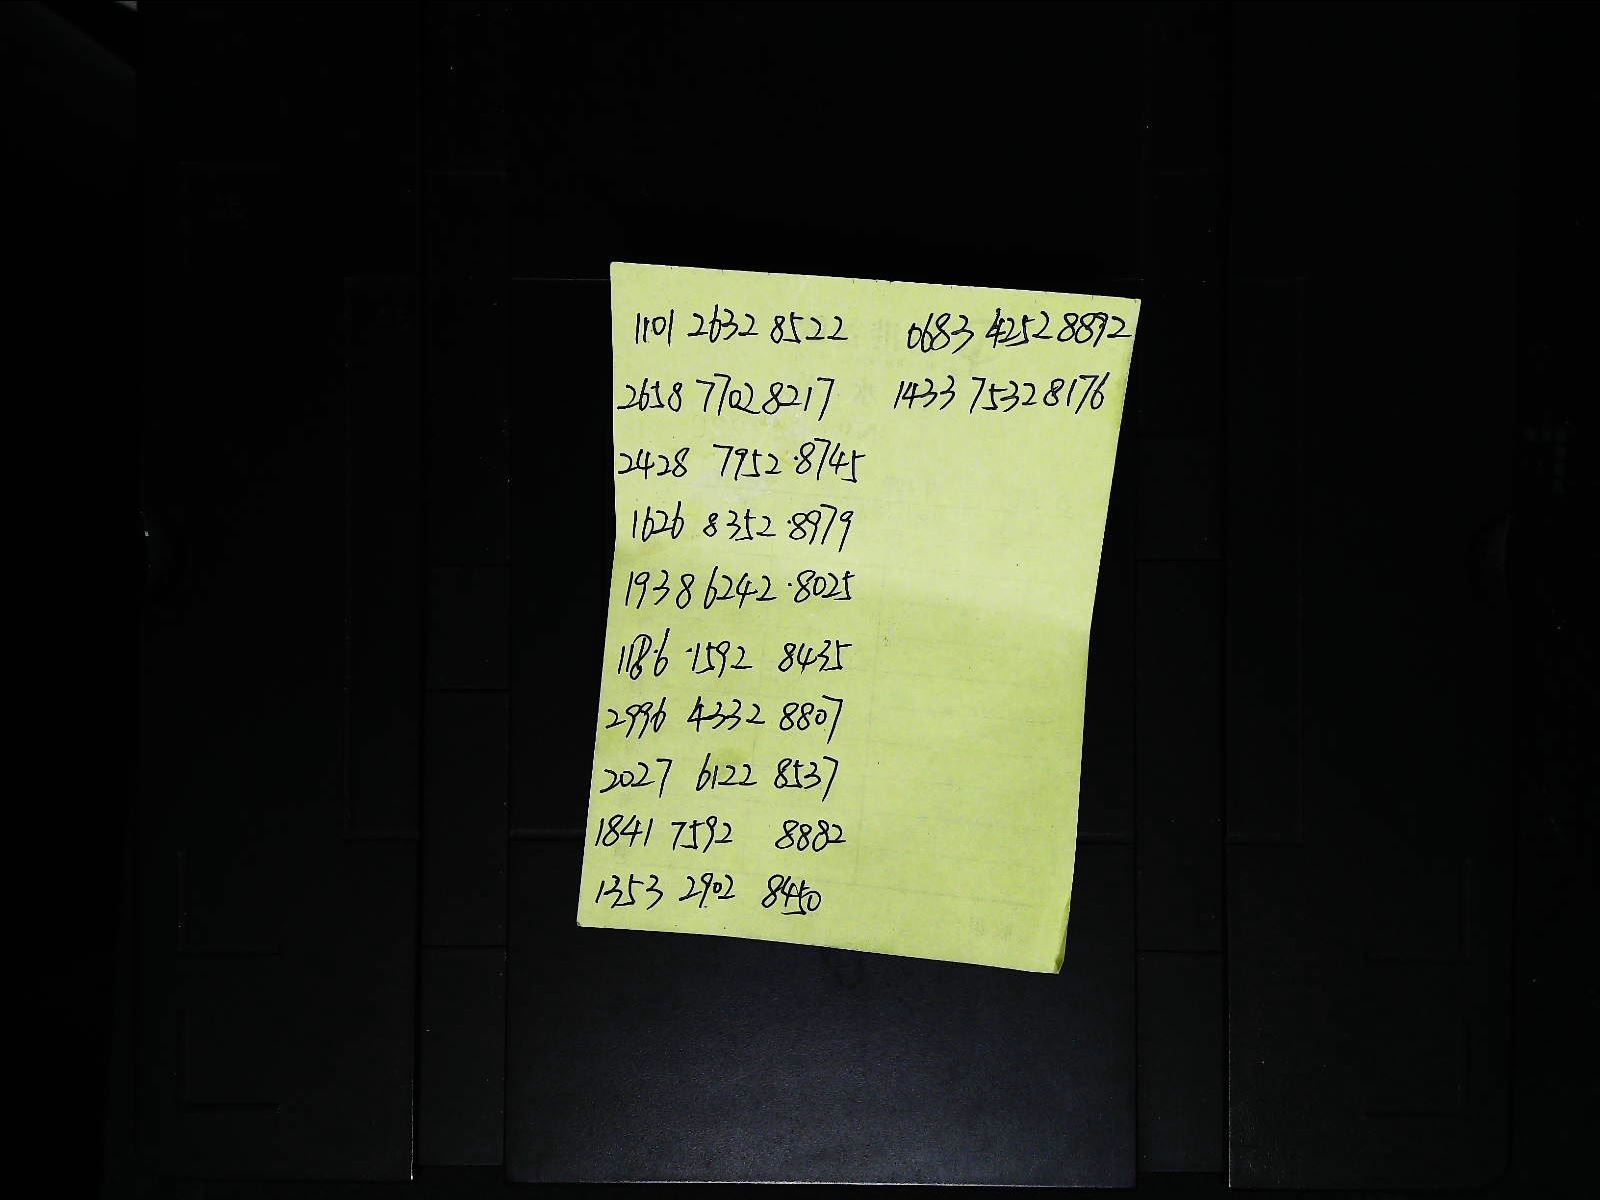 1101 2632 8522 0683 4252 8892
2658 7702 8217 1433 7532 8176
2428 7952 8745
1626 8352 8979
1938 6242 8025
1186 1592 8435
2996 4332 8807
2027 6122 8537
1841 7592 8882
1353 2902 8450